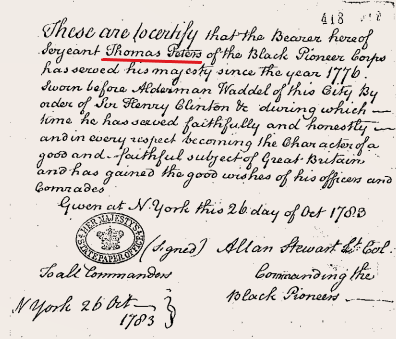 418
These are to certify that the Bearer hereof
Serjeant Thomas Peters of the Black Pioneer Corps
has served his majesty since the year 1776.
Sworn before Alderman Waddel of this City By
order of Ser Henry Clinton & during which
time he has served faithfully and honestly
and in every respect becoming the Character of a
good and faithful subject of Great Britain
and has gained the good wishes of his officers and
Comrades
Gwen at N York this 26 day of Oct 1783
HER MAJESTY'S STATE PAPER OFFICE
(Signed) Allan Stewart Lt Col
To all Commanders
Commanding the
Black Pioneers
N York 26 Oct
1783